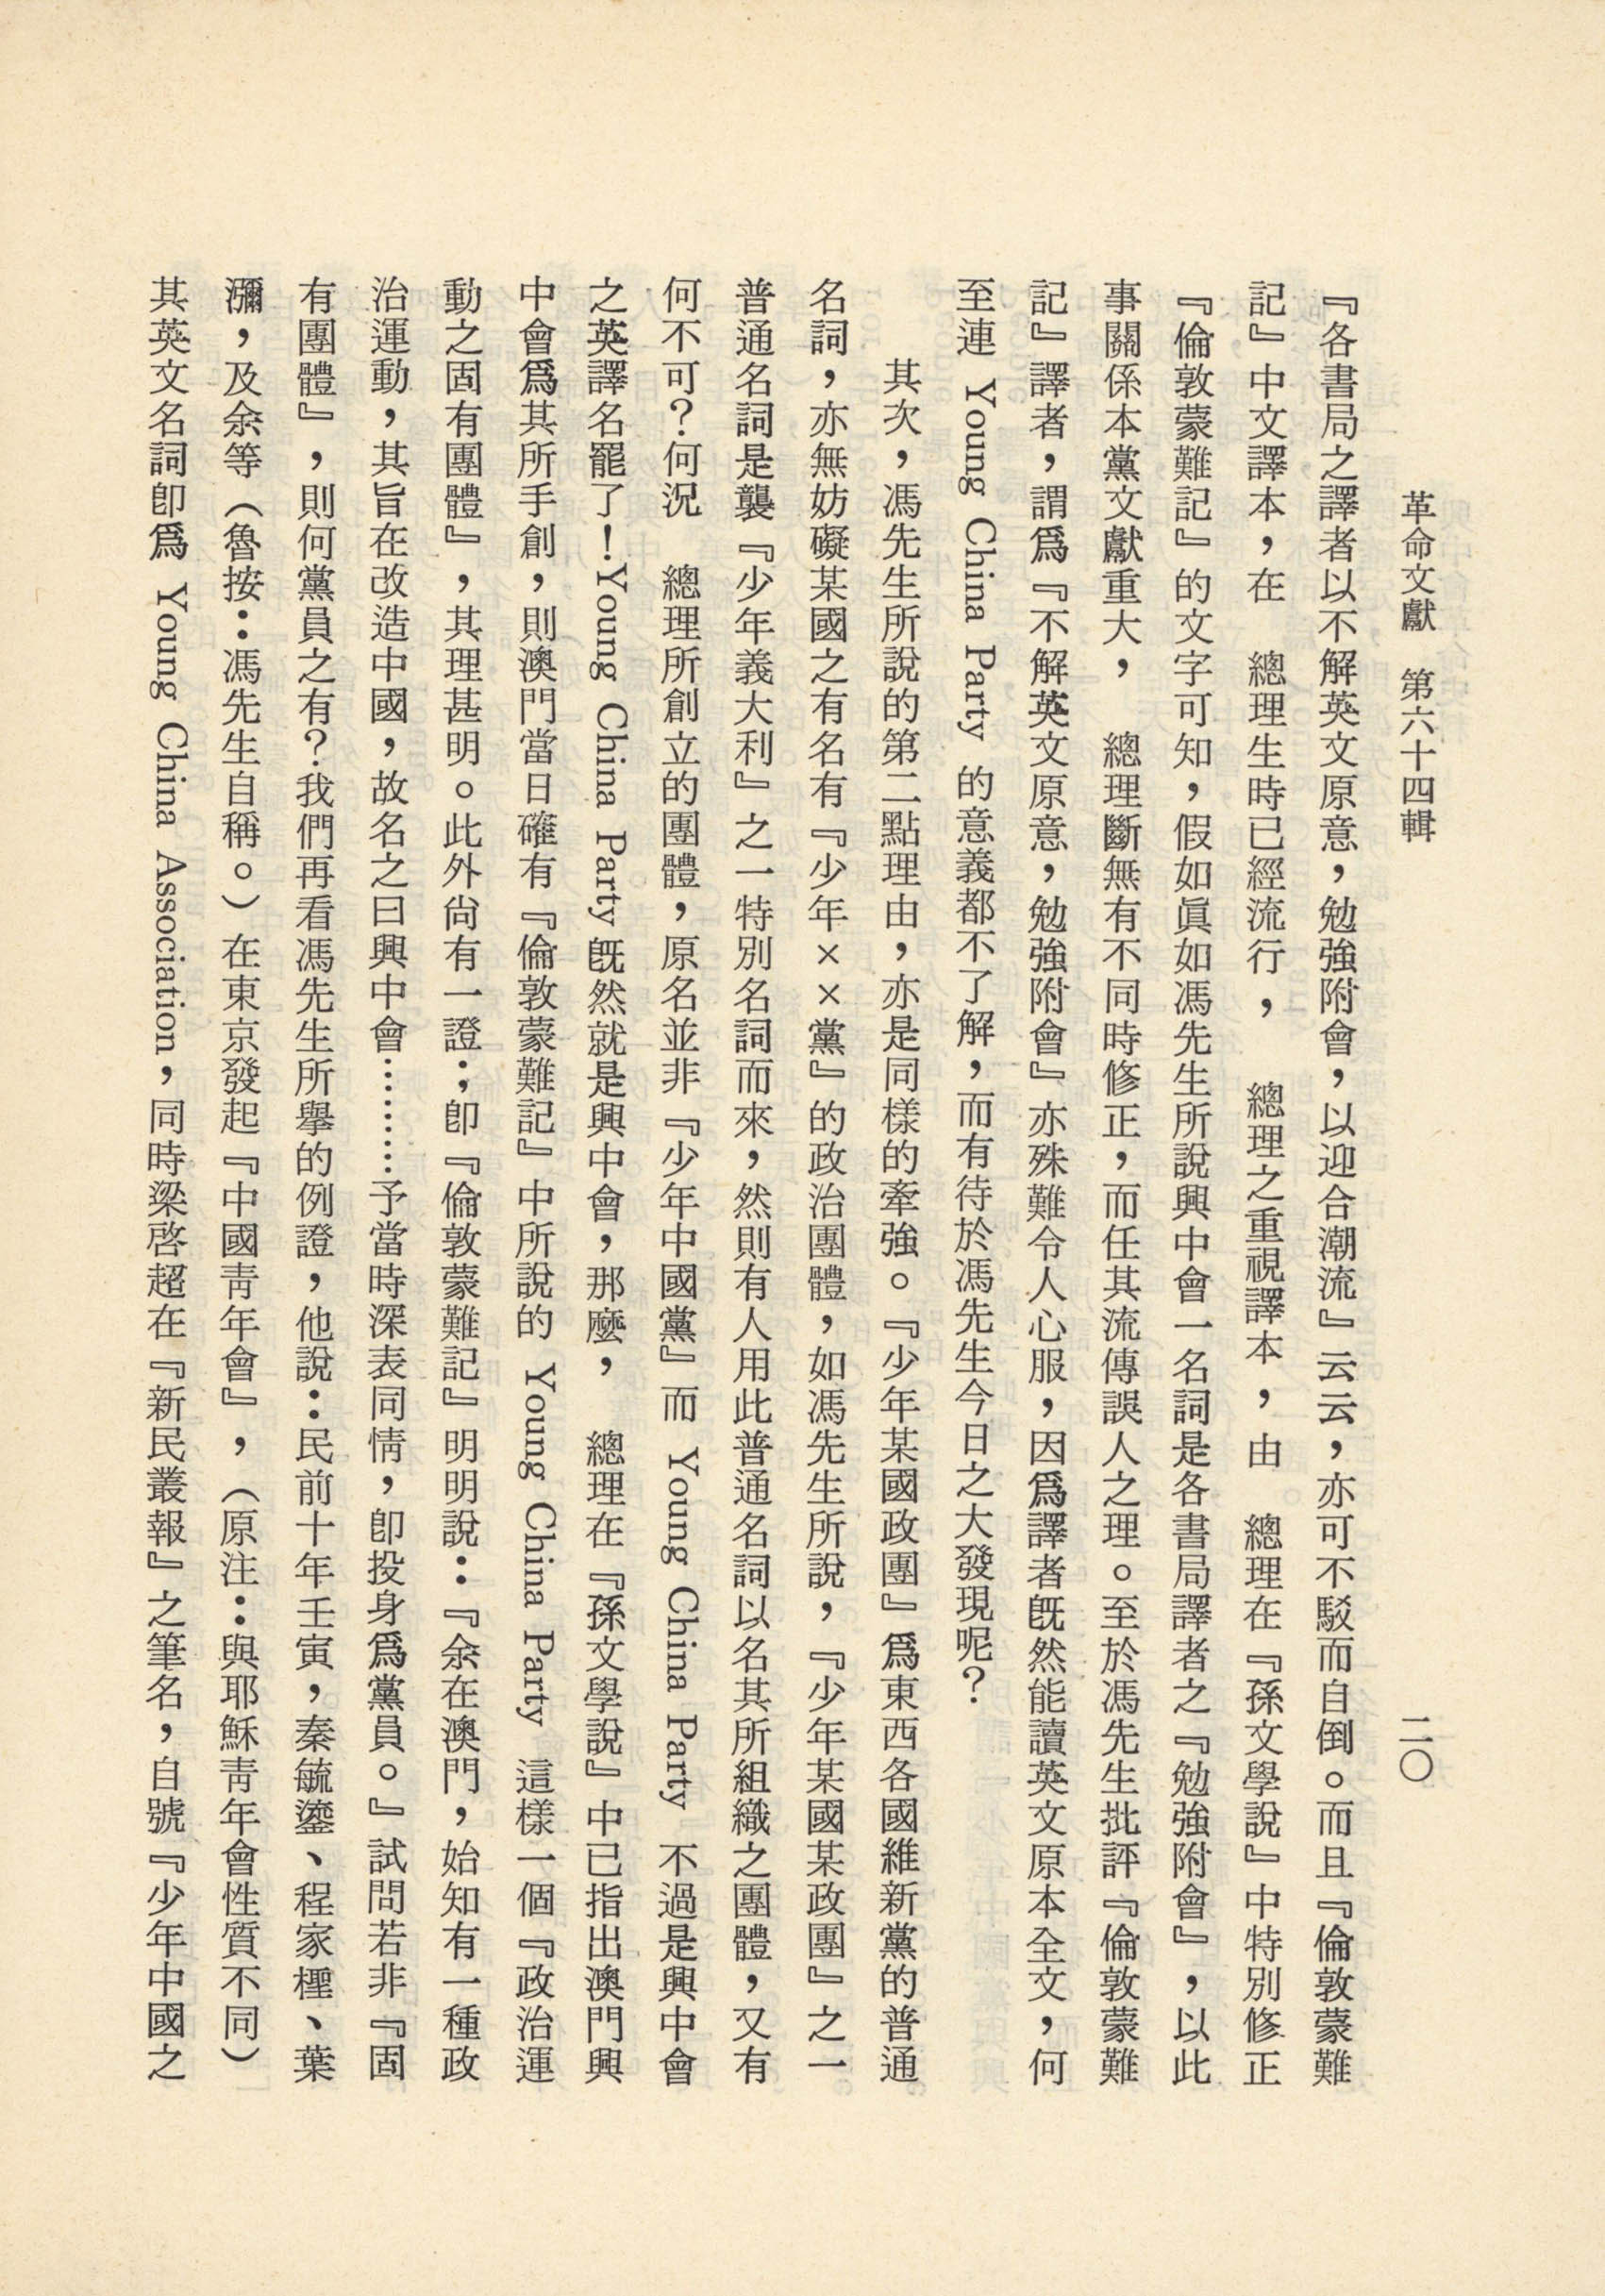 革命文獻　第六十四輯　二〇
『各書局之譯者以不解英文原意，勉強附會，以迎合潮流』云云，亦可不駁而自倒。而且『倫敦蒙難
記』中文譯本，在　總理生時已經流行，　總理之重視譯本，由　總理在『孫文學說』中特別修正
『倫敦蒙難記』的文字可知，假如眞如馮先生所說興中會一名詞是各書局譯者之『勉強附會』，以此
事關係本黨文獻重大，　總理斷無有不同時修正，而任其流傳誤人之理。至於馮先生批評『倫敦蒙難
記』譯者，謂爲『不解英文原意，勉強附會』亦殊難令人心服，因爲譯者旣然能讀英文原本全文，何
至連 Young China Party 的意義都不了解，而有待於馮先生今日之大發現呢？
其次，馮先生所說的第二點理由，亦是同樣的牽強。『少年某國政團』爲東西各國維新黨的普通
名詞，亦無妨礙某國之有名有『少年××黨』的政治團體，如馮先生所說，『少年某國某政團』之一
普通名詞是襲『少年義大利』之一特別名詞而來，然則有人用此普通名詞以名其所組織之團體，又有
何不可？何況　總理所創立的團體，原名並非『少年中國黨』而 Young China Party 不過是興中會
之英譯名罷了！Young China Party 旣然就是興中會，那麼，　總理在『孫文學說』中已指出澳門興
中會爲其所手創，則澳門當日確有『倫敦蒙難記』中所說的 Young China Party 這樣一個『政治運
動之固有團體』，其理甚明。此外尙有一證；卽『倫敦蒙難記』明明說：『余在澳門，始知有一種政
治運動，其旨在改造中國，故名之曰興中會………予當時深表同情，卽投身爲黨員。』試問若非『固
有團體』，則何黨員之有？我們再看馮先生所舉的例證，他說：民前十年壬寅，秦毓鎏、程家檉、葉
瀰，及余等（魯按：馮先生自稱。）在東京發起『中國靑年會』，（原注：與耶穌靑年會性質不同）
其英文名詞卽爲 Young China Association，同時梁啓超在『新民叢報』之筆名，自號『少年中國之